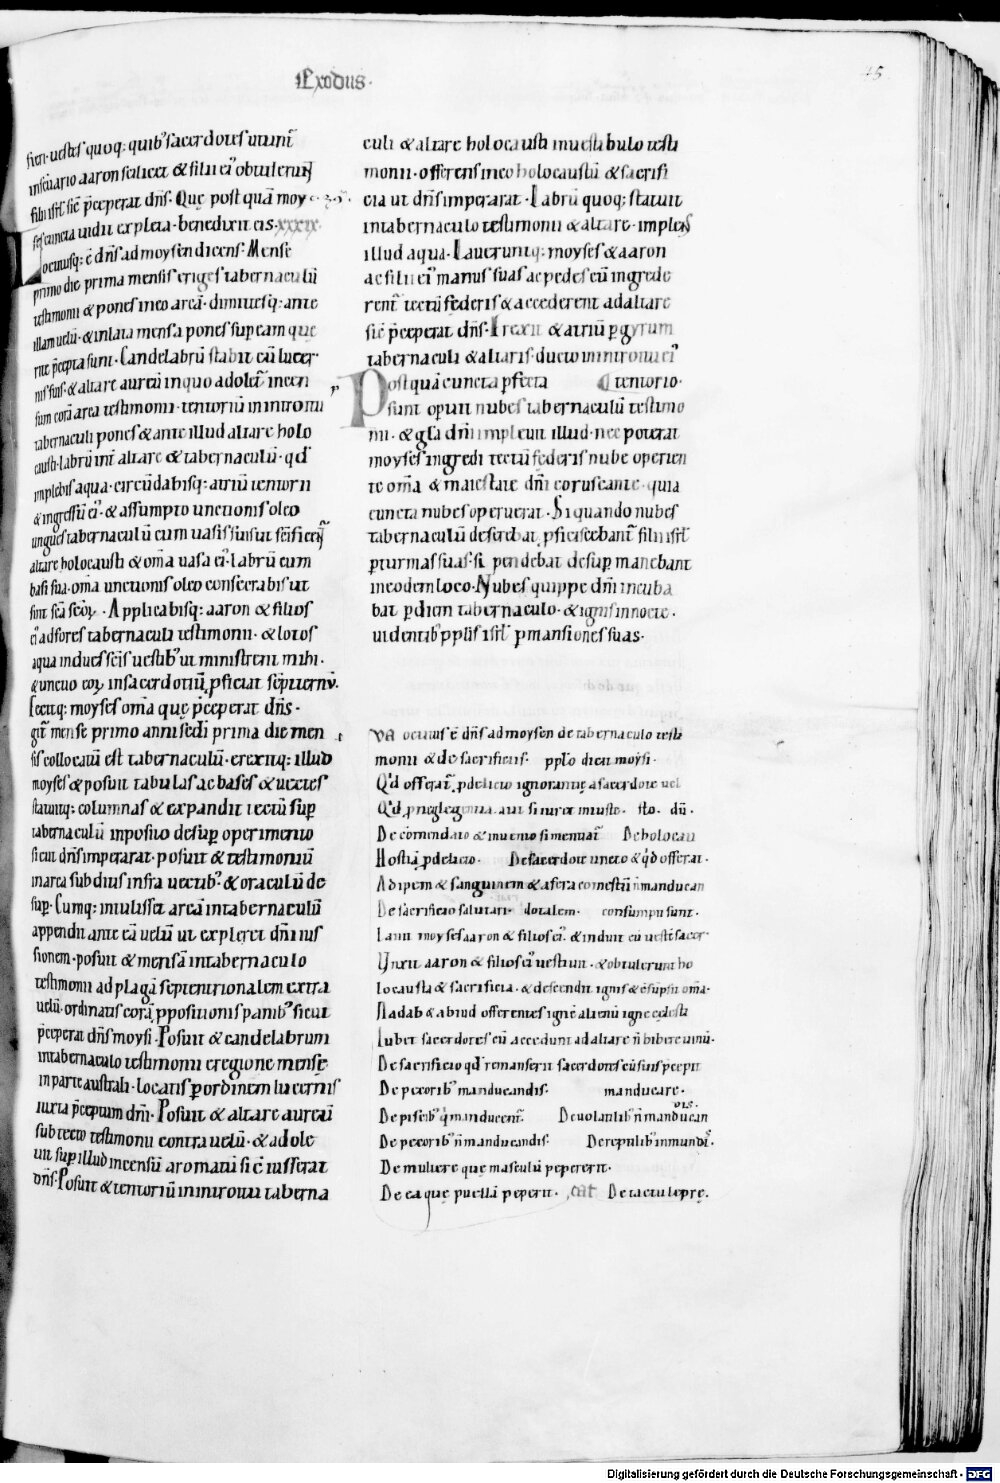 Exodus.
45
fieri. uestes quoq; quib' sacerdotes utunt̄
in sc̄uario aaron scilicet & filii ei' obtulerunt
filii isrl̄. sic̄ p̄ceperat dn̄s. Quę postquā moy
ses cuncta uidit expleta. benedixit eis. xxxix.
Locutusq; ē dn̄s ad moysen dicens. Mense
primo die prima mensis eriges tabernaculū
testimonii & pones in eo arcā. dimittesq; ante
illam uelū. & inlata mensa pones sup eam que
rite p̄cepta sunt. Candelabrū stabit cū lucer
nis suis. & altare aureū in quo adolet̄ incen
sum corā arca testimonii. tentoriū in introitu
tabernaculi pones & ante illud altare holo
causti. labrū int̄ altare & tabernaculū. qd̄
implebis aqua. circūdabisq; atriū tentorii
& ingressū ei'. & assumpto unctionis oleo
ungues tabernaculū cum uasis suis ut sc̄ificent̄
altare holocausti & om̄a uasa ei'. labrū cum
basi sua. om̄a unctionis oleo consecrabis ut
sint sc̄a scōꝝ. Applicabisq; aaron & filios
ei' ad fores tabernaculi testimonii. & lotos
aqua indues sc̄is uestib' ut ministrent mihi.
& unctio eoꝝ in sacerdotiū pficiat sēpiternū.
Fecitq; moyses om̄a quę p̄ceperat dn̄s.
Igit̄ mense primo anni sc̄di prima die men
sis collocatū est tabernaculū. erexitq; illud
moyses & posuit tabulas ac bases & uectes
statuitq; columnas & expandit tectū sup
tabernaculū inposito desup operimento
sicut dn̄s imperarat. posuit & testimoniū
in arca subditis infra uectib'. & oraculū de
sup. Cumq; intulisset arcā in tabernaculū
appendit ante eā uelū ut expleret dn̄i ius
sionem. posuit & mensā in tabernaculo
testimonii ad plagā septentrionalem extra
uelū. ordinatis corā ppositionis panib' sicut
p̄ceperat dn̄s moysi. Posuit & candelabrum
in tabernaculo testimonii e regione mense
in parte australi. locatis p ordinem lucernis
iuxta p̄ceptum dn̄i. Posuit & altare aureū
sub tecto testimonii contra uelū. & adole
uit sup illud incensū aromatū sic̄ iusserat
dn̄s. Posuit & tentoriū in introitu taberna
culi & altare holocausti in uestibulo testi
monii. offerens in eo holocaustū & sacrifi
cia ut dn̄s imperarat. Labrū quoq; statuit
in tabernaculo testimonii & altare. implens
illud aqua. Lauerunt q; moyses & aaron
ac filii ei' manus suas ac pedes cū ingrede
rent̄ tectū federis & accederent ad altare
sic̄ p̄ceperat dn̄s. Erexit & atriū p gyrum
tabernaculi & altaris. ducto in introitu ei'
Postquā cuncta pfecta tentorio.
sunt opuit nubes tabernaculū testimo
nii. & glā dn̄i impleuit illud. nec poterat
moyses ingredi tectū federis nube operien
te om̄a & maiestate dn̄i coruscante. quia
cuncta nubes operuerat. Si quando nubes
tabernaculū deserebat. pficiscebant̄ filii isrl̄
p turmas suas. si pendebat desup manebant
in eodem loco. Nubes quippe dn̄i incuba
bat p diem tabernaculo. & ignis in nocte.
uidentib' pplīs isrl̄ p mansiones suas.
ocutus ē dn̄s ad moysen de tabernaculo testi
monii & de sacrificiis. pplō dicit moysi.
Qd̄ offerat̄ p delicto ignorantię a sacerdote uel
Qd̄ p neglegentia. aut si iuret iniuste.
De cōmendato & inuento si mentiat̄ De holocau
Hostia p delicto. De sacerdote uncto & qd̄ offerat.
Adipem & sanguinem & a fera comestū n̄ manducan
De sacrificio salutari. dotalem. consumpti sunt.
Lauit moyses aaron & filios ei'. & induit eū ueste sacer
Unxit aaron & filios ei' uestiuit. & obtulerunt ho
locausta & sacrificia. & descendit ignis & csūpsit om̄a.
Nadab & abiud offerentes ignē alienū igne celesti
Iubet sacerdotes cū accedunt ad altare n̄ bibere uinū.
De sacrificio qd̄ remanserit sacerdotes cū suis p̄cepit
De pecorib' manducandis. manducare.
De piscib' q̄ manducent̄. De uolatilib' n̄ manducan
dis.
De pecorib' n̄ manducandis. De reptilib' inmundis.
De muliere que masculū pepererit.
De ea quę puellā peperit. De tactu leprę.
Digitalisierung gefördert durch die Deutsche Forschungsgemeinschaft - DFG